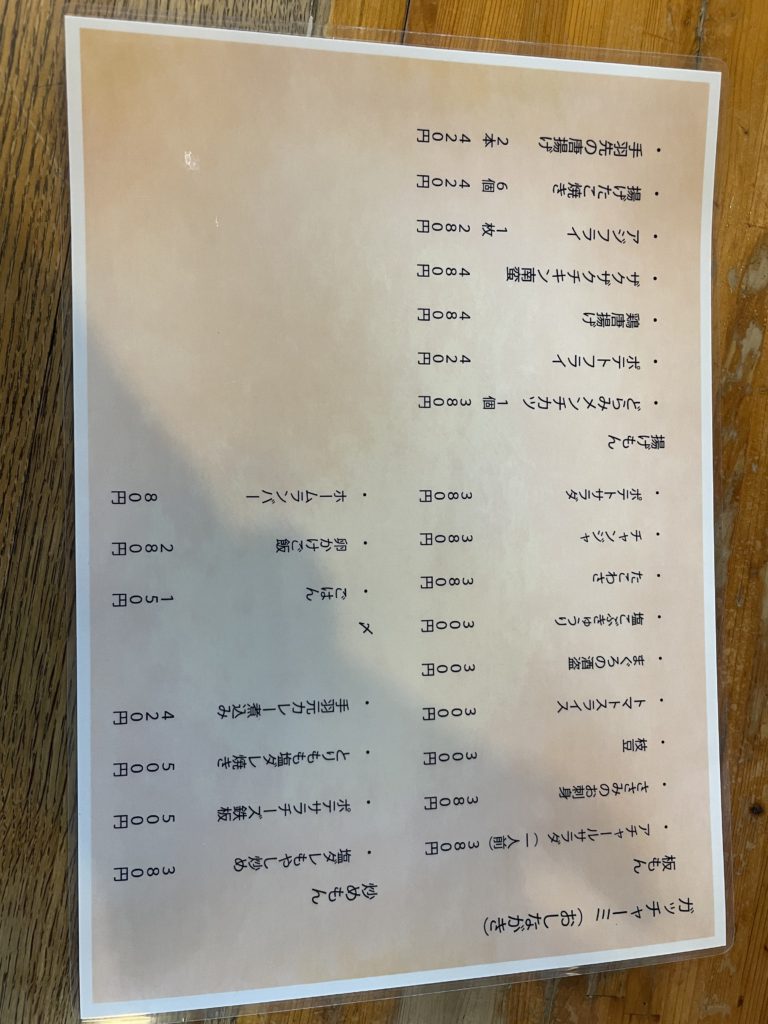 ガッチャーミ(おしながき)
板もん
・アチャールサラダ(一人前) 380円
・ささみのお刺身 380円
・枝豆 300円
・トマトスライス 300円
・まぐろの酒盗 300円
・塩こぶきゅうり 300円
・たこわさ 380円
・チャンジャ 380円
・ポテトサラダ 380円
揚げもん
・どらみメンチカツ 1個 380円
・ポテトフライ 420円
・鶏唐揚げ 480円
・ザクザクチキン南蛮 480円
・アジフライ 1枚 280円
・揚げたこ焼き 6個 420円
・手羽先の唐揚げ 2本 420円
炒めもん
・塩ダレもやし炒め 380円
・ポテサラチーズ鉄板 500円
・とりもも塩ダレ焼き 500円
・手羽元カレー煮込み 420円
〆
・ごはん 150円
・卵かけご飯 280円
・ホームランバー 80円